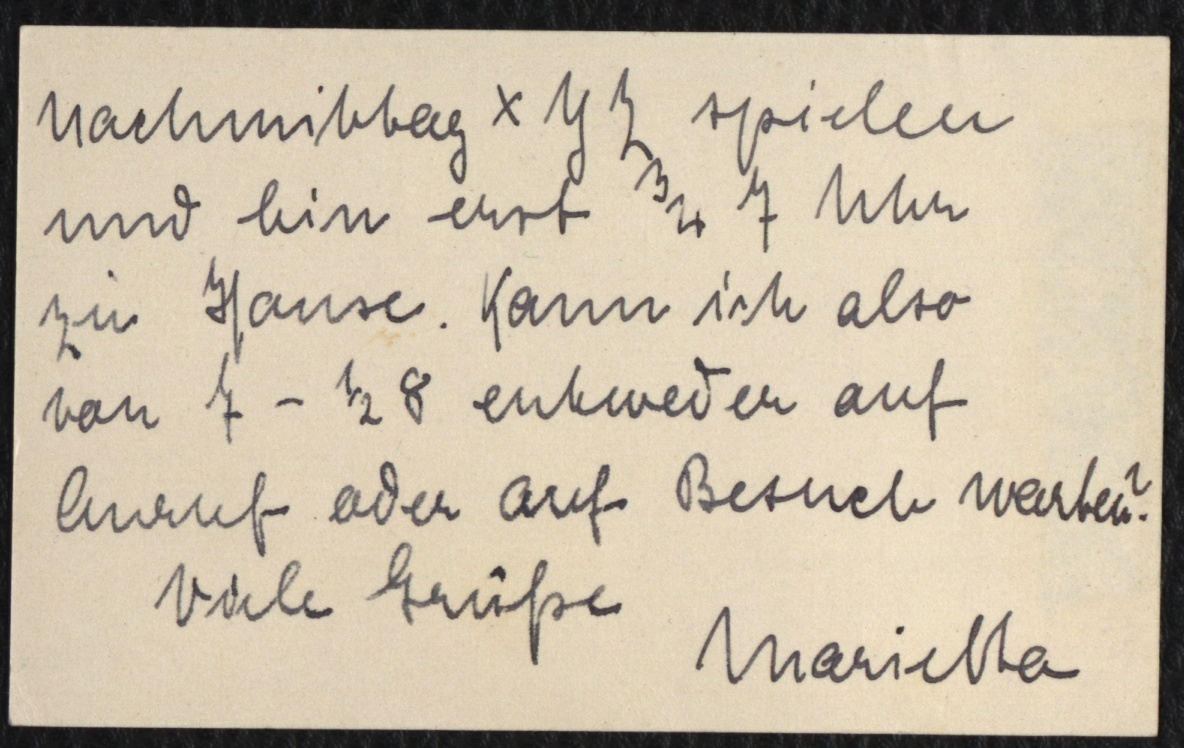 Nachmittag XYZ spielen
und bin erst 3/4 7 Uhr
zu Hause. Kann ich also
von 7 - 1/2 8 entweder auf
Anruf oder auf Besuch warten?
Viele Grüße
Marietta